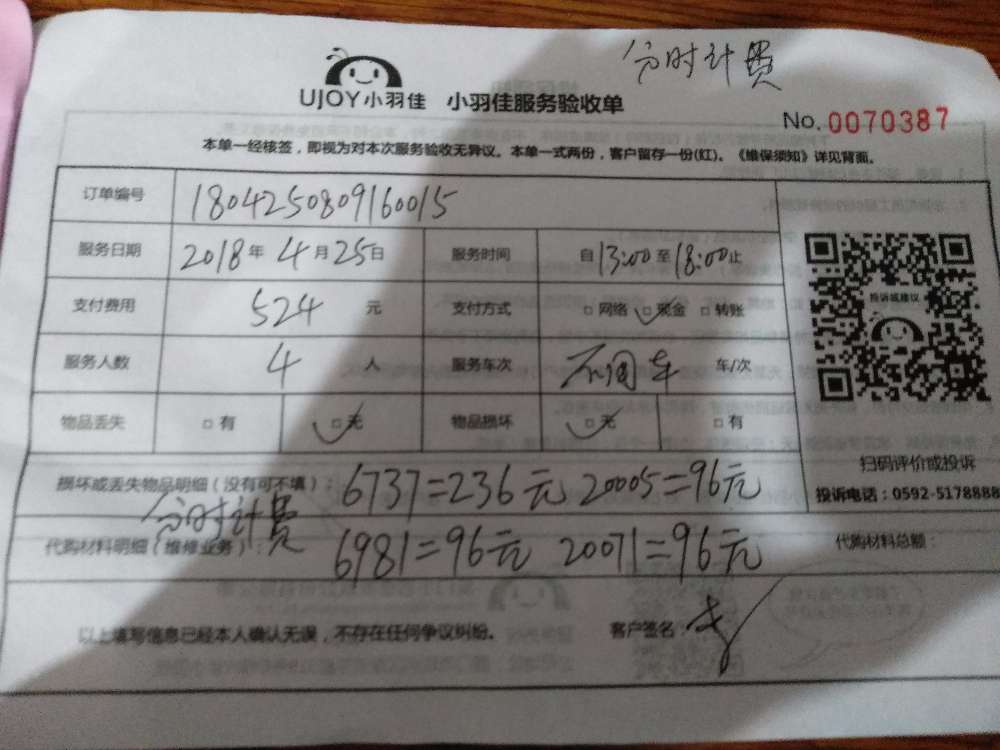 分时计费
UJOY小羽佳 小羽佳服务验收单
No. 0070387
本单一经核签，即视为对本次服务验收无异议。本单一式两份，客户留存一份(红)。《维保须知》详见背面。
订单编号 1804250809160015
服务日期 2018年 4月25日 服务时间 自13:00至18:00止
支付费用 524 元 支付方式 □网络 ☑现金 □转账
服务人数 4 人 服务车次 不用车 车/次
物品丢失 □有 ☑无 物品损坏 ☑无 □有
投诉或建议
扫码评价或投诉
投诉电话：0592-5178888
损坏或丢失物品明细（没有可不填）： 6737=236元 20005=96元
分时计费
代购材料明细（维修业务）： 6981=96元 20071=96元 代购材料总额：
以上填写信息已经本人确认无误，不存在任何争议纠纷。 客户签名：